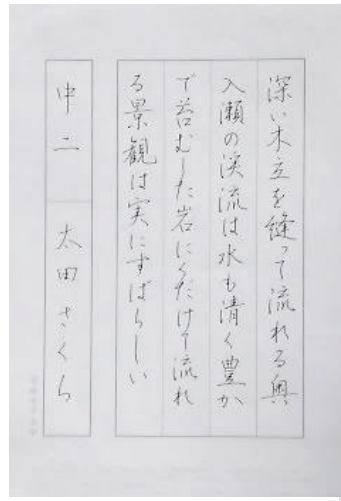 深い木立を縫って流れる奥
入瀬の渓流は水も清く豊か
で苔むした岩にくだけて流れ
る景観は実にすばらしい
中二 太田さくら